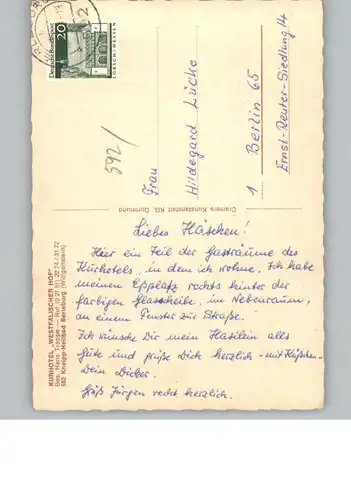 Deutsche Bundespost
20
LORSCH · HESSEN
592/
Frau
Hildegard Lücke
1 Berlin 65
Ernst-Reuter-Siedlung 14
Cramers Kunstanstalt KG, Dortmund
KURHOTEL „WESTFÄLISCHER HOF"
Bes. Hans Trappe — Ruf (0 27 51)
592 Kneipp-Heilbad Berleburg (Wittgenstein)
Liebes Häschen!
Hier ein Teil der Gasträume des
Kurhotels, in dem ich wohne. Ich habe
meinen Eßplatz rechts hinter der
farbigen Glasscheibe, im Nebenraum,
an einem Fenster zur Straße.
Ich wünsche Dir mein Häslein alles
Gute und grüße Dich herzlich - mit Küßchen
Dein Dicker.
Grüß Jürgen recht herzlich.